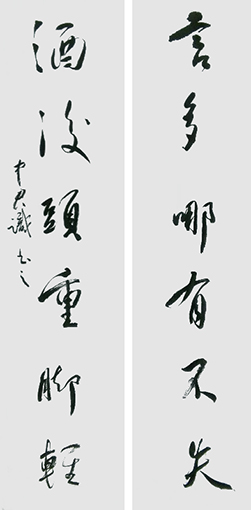 言多哪有不失
酒後頭重脚輕